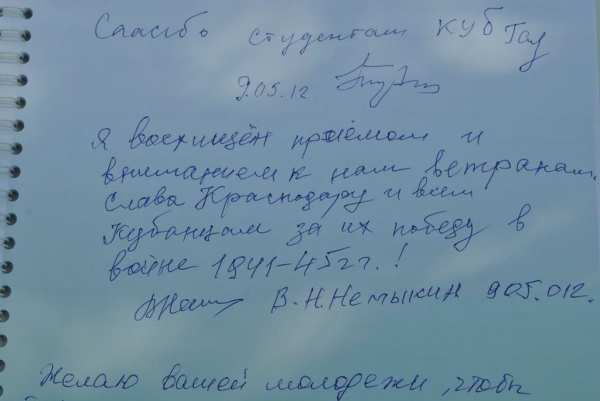 Спасибо студентам КУБ Гау
9.05.12
Я восхищён приёмом и
вниманием к нам ветранам.
Слава Краснодару и всем
Кубанцам за их победу в
войне 1941-45 г.г.!
В.Н.Немыкин 9.05.012.
Желаю вашей молодежи, чтобы